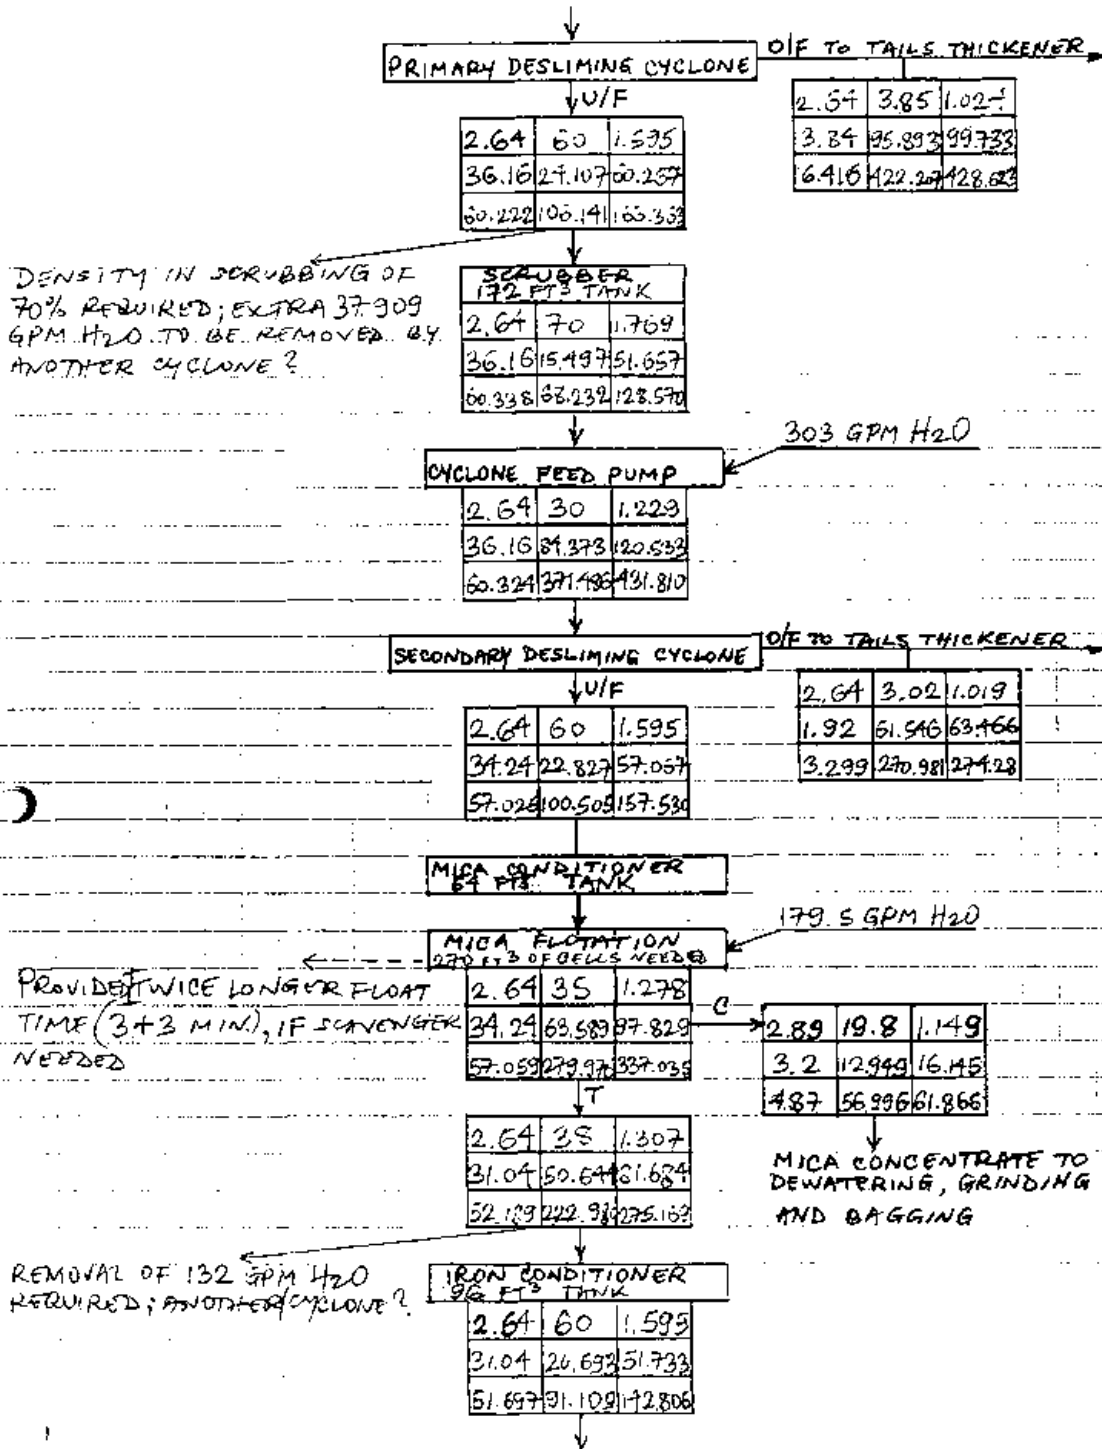 O/F TO TAILS THICKENER
PRIMARY DESLIMING CYCLONE
U/F
2.64 3.85
3.84 95.893 99.733
6.416 422.207 428.623
2.64 60 1.595
36.16 24.107 60.267
60.222 106.141
DENSITY IN SCRUBBING OF
70% REQUIRED; EXTRA 37.909
GPM H2O TO BE REMOVED BY
ANOTHER CYCLONE?
SCRUBBER
172 FT3 TANK
2.64 70 1.769
36.16 15.497 51.657
60.338 68.232 128.570
303 GPM H2O
CYCLONE FEED PUMP
2.64 30 1.229
36.16 84.373 120.533
60.324 371.486 431.810
O/F TO TAILS THICKENER
SECONDARY DESLIMING CYCLONE
U/F
2.64 3.02 1.019
1.92 61.546 63.466
3.299 270.981 274.28
2.64 60 1.595
34.24 22.827 57.067
57.025 100.505 157.530
MICA CONDITIONER
64 FT3 TANK
179.5 GPM H2O
MICA FLOTATION
270 FT3 OF CELLS NEEDED
PROVIDE TWICE LONGER FLOAT
TIME (3+3 MIN), IF SCAVENGER
NEEDED
2.64 35 1.278
34.24 63.589 97.829
57.059 279.976 337.035
C
2.89 19.8 1.149
3.2 12.949 16.145
4.87 56.996 61.866
T
2.64 38 1.307
31.04 50.644 81.684
52.189 275.169
MICA CONCENTRATE TO
DEWATERING, GRINDING
AND BAGGING
REMOVAL OF 132 GPM H2O
REQUIRED; ANOTHER CYCLONE?
IRON CONDITIONER
96 FT3 TANK
2.64 60 1.595
31.04 20.693 51.733
51.697 91.109 142.806